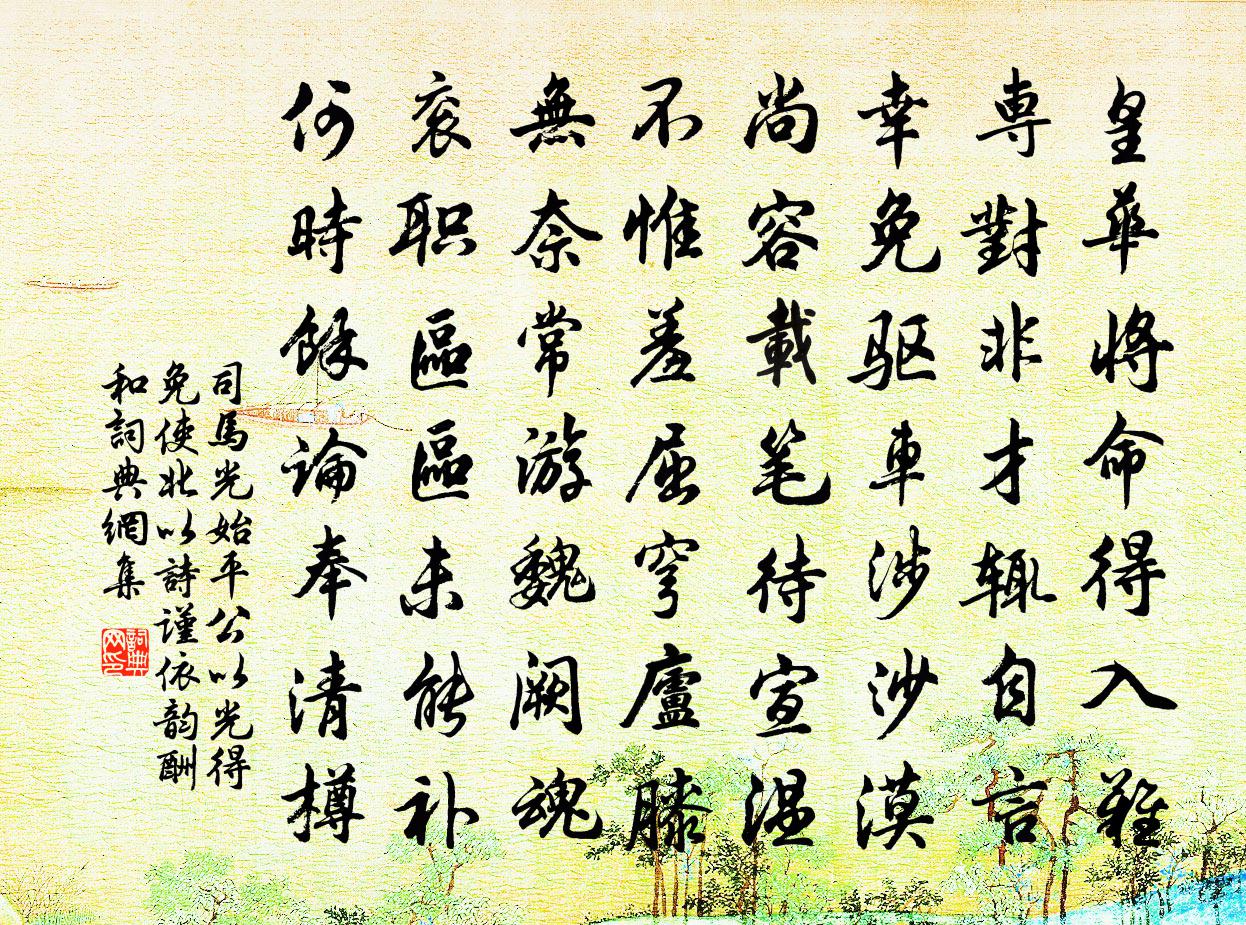 皇華將命得入難
専對非才輙自言
幸免驱車涉沙漠
尚容載笔待宣温
不惟羞屈穹廬膝
無奈常游魏阙魂
衮职區區未能补
何時餘論奉清樽
司馬光始平公以光得
免使北以詩谨依韵酬
和詞典網集
詞典网印